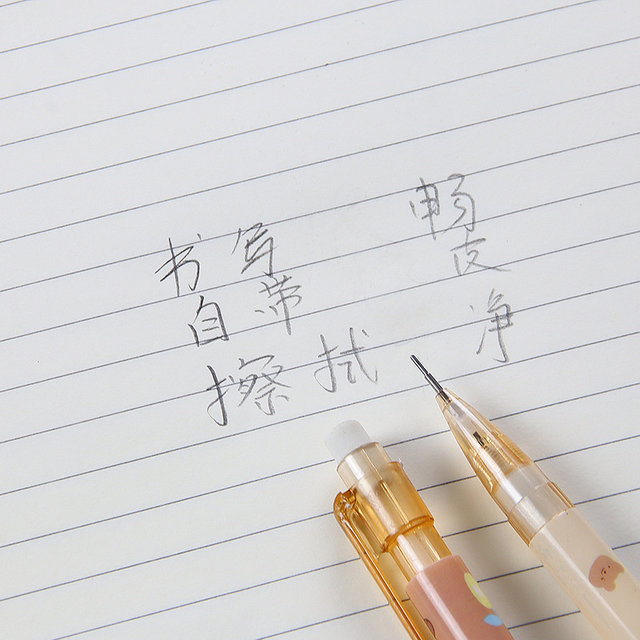 书写 畅
自带 皮
擦拭 净